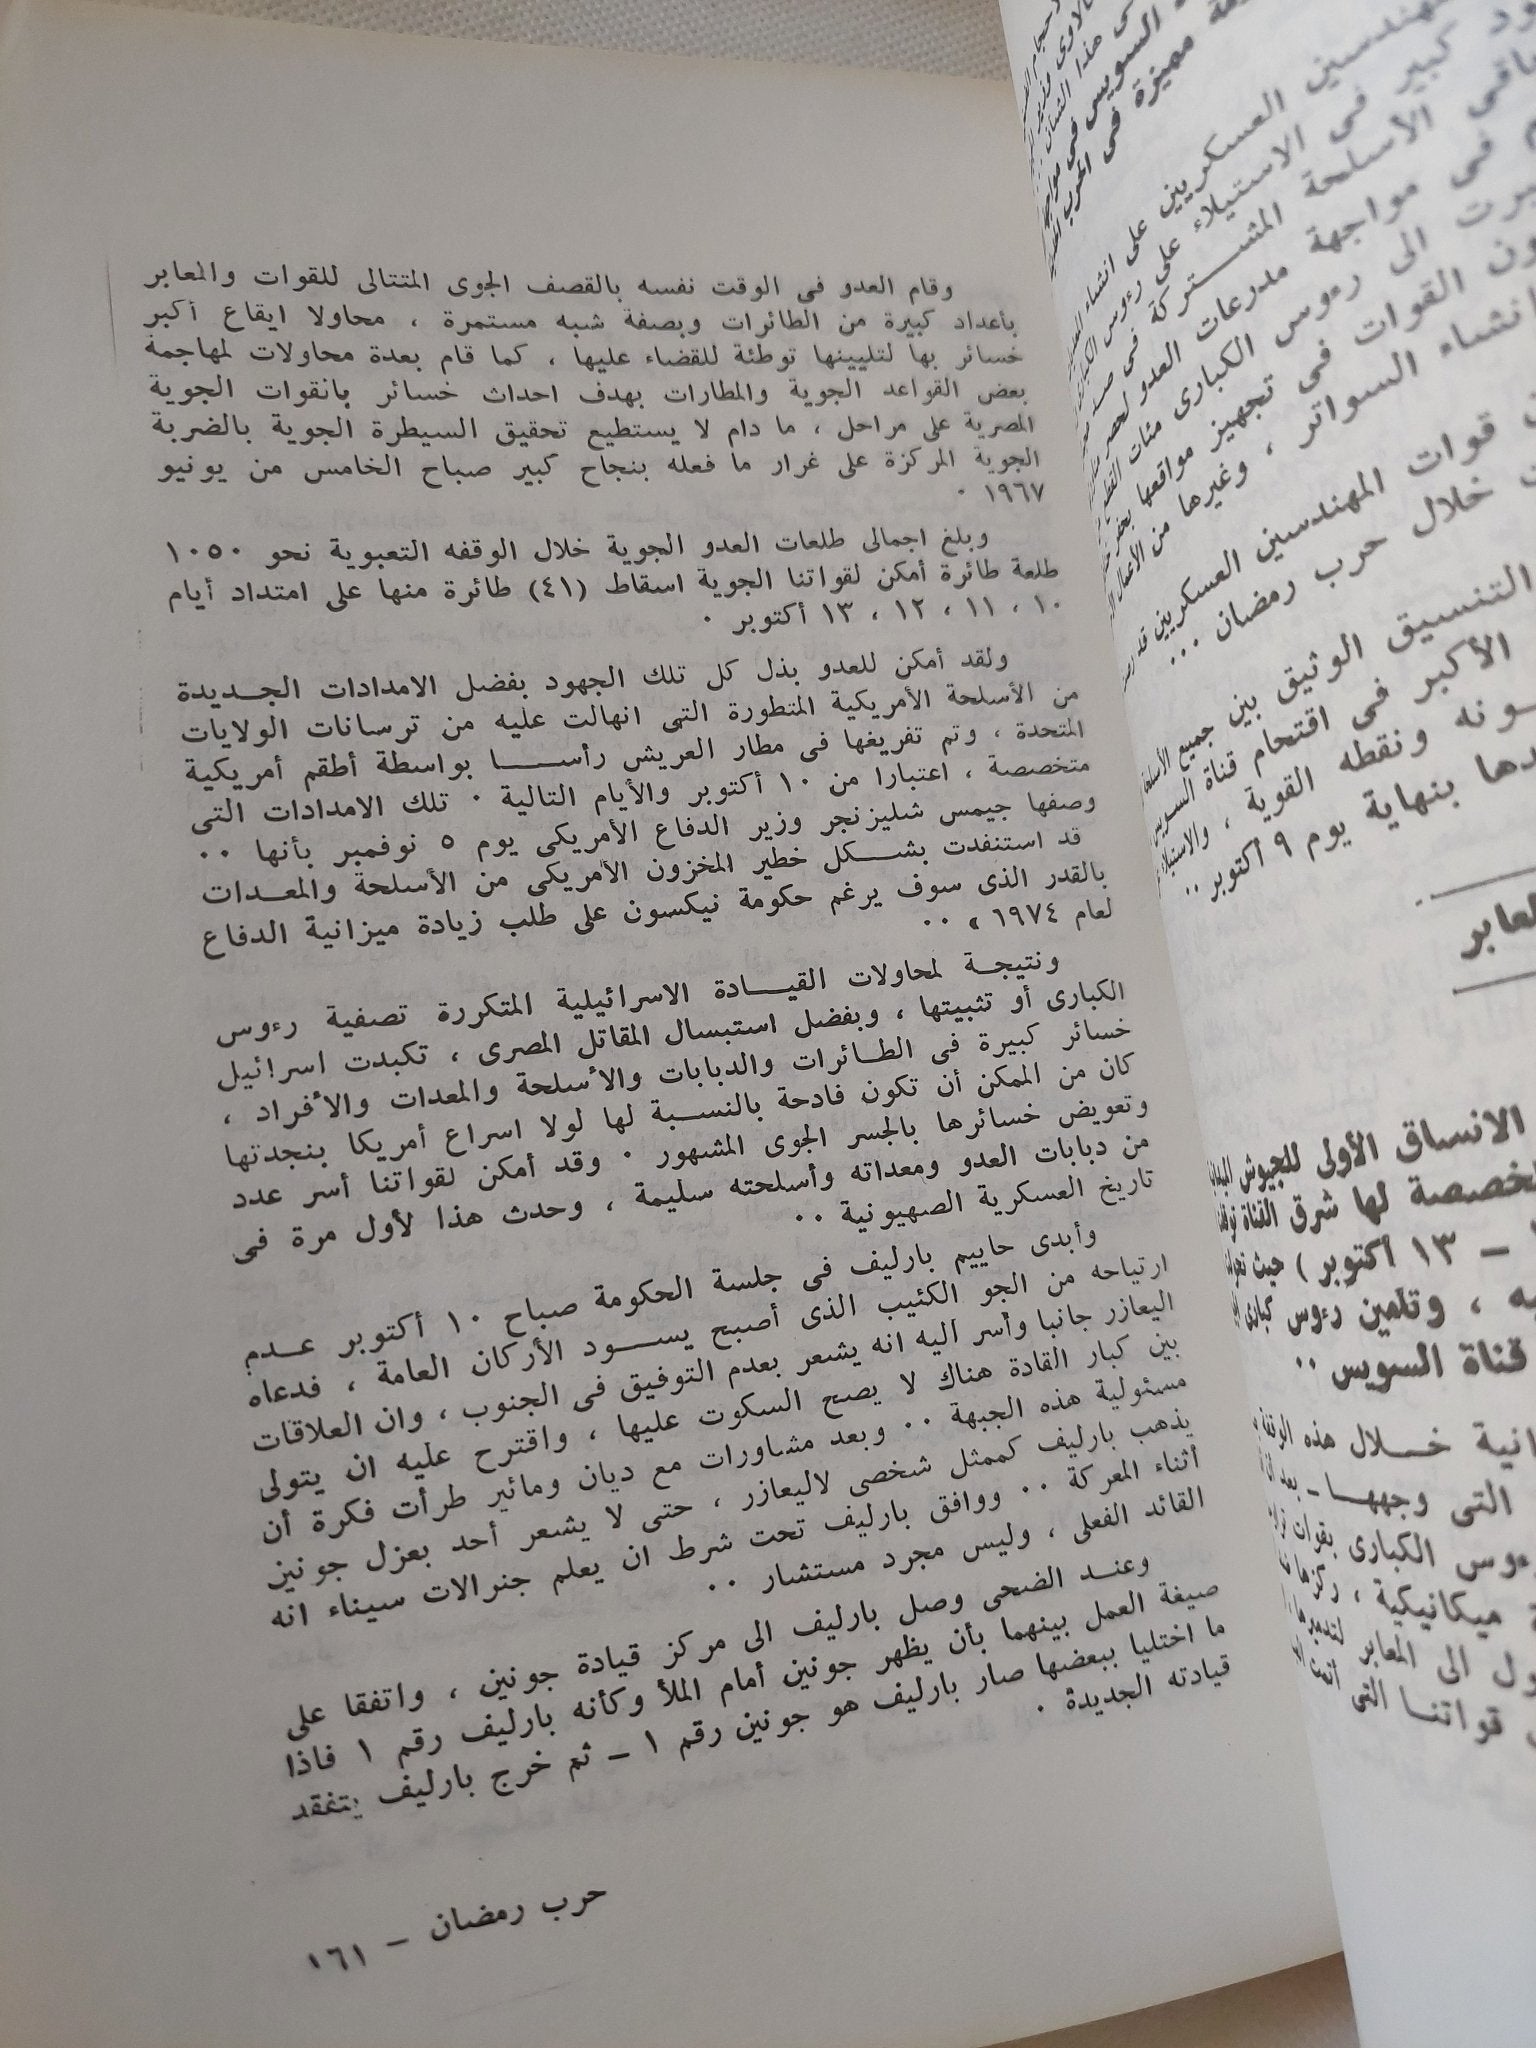 وقام العدو فى الوقت نفسه بالقصف الجوى المتتالى للقوات والمعابر
بأعداد كبيرة من الطائرات وبصفة شبه مستمرة ، محاولا ايقاع أكبر
خسائر بها لتليينها توطئة للقضاء عليها ، كما قام بعدة محاولات لمهاجمة
بعض القواعد الجوية والمطارات بهدف احداث خسائر بانقوات الجوية
المصرية على مراحل ، ما دام لا يستطيع تحقيق السيطرة الجوية بالضربة
الجوية المركزة على غرار ما فعله بنجاح كبير صباح الخامس من يونيو
١٩٦٧ ٠
وبلغ اجمالى طلعات العدو الجوية خلال الوقفه التعبوية نحو ١٠٥٠
طلعة طائرة أمكن لقواتنا الجوية اسقاط (٤١) طائرة منها على امتداد أيام
١٠ ، ١١ ، ١٢ ، ١٣ أكتوبر ٠
ولقد أمكن للعدو بذل كل تلك الجهود بفضل الامدادات الجـديدة
من الأسلحة الأمريكية المتطورة التى انهالت عليه من ترسانات الولايات
المتحدة ، وتم تفريغها فى مطار العريش رأســـا بواسطة أطقم أمريكية
متخصصة ، اعتبارا من ١٠ أكتوبر والأيام التالية ٠ تلك الامدادات التى
وصفها جيمس شليزنجر وزير الدفاع الأمريكى يوم ٥ نوفمبر بأنها ٠٠
قد استنفدت بشــكل خطير المخزون الأمريكى من الأسلحة والمعـدات
بالقدر الذى سوف يرغم حكومة نيكسون على طلب زيادة ميزانية الدفاع
لعام ١٩٧٤ » ٠٠
ونتيجـة لمحاولات القيــادة الاسرائيلية المتكررة تصفية رءوس
الكبارى أو تثبيتها ، وبفضل استبسال المقاتل المصرى ، تكبدت اسرائيل
خسائر كبيرة فى الطـائرات والدبابات والأسلحة والمعدات والأفراد ،
كان من الممكن أن تكون فادحة بالنسـبة لها لولا اسراع أمريكا بنجدتها
وتعويض خسائرها بالجسر الجوى المشهور ٠ وقد أمكن لقواتنا أسر عدد
من دبابات العدو ومعداته وأسلحته سليمة ، وحدث هذا لأول مرة فى
تاريخ العسكرية الصهيونية ٠٠
وأبدى حاييم بارليف فى جلسة الحكومة صباح ١٠ أكتوبر عــدم
ارتياحه من الجو الكئيب الذى أصبح يســـود الأركان العامة ، فدعاه
اليعازر جانبا وأسر اليه انه يشعر بعدم التوفيق فى الجنوب ، وان العلاقات
بين كبار القادة هناك لا يصح السكوت عليها ، واقترح عليه ان يتولى
مسئولية هذه الجبهة ٠٠ وبعد مشاورات مع ديان ومائير طرأت فكرة أن
يذهب بارليف كممثل شخصى لاليعازر ، حتى لا يشعر أحد بعزل جونين
أثناء المعركة ٠٠ ووافق بارليف تحت شرط ان يعلم جنرالات سيناء انه
القائد الفعلى ، وليس مجرد مستشار ٠٠
وعنـد الضحى وصل بارليف الى مركز قيادة جونين ، واتفقا على
صيغة العمل بينهما بأن يظهر جونين أمام الملأ وكأنه بارليف رقم ١ فاذا
ما اختليا ببعضها صار بارليف هو جونين رقم ١ – ثم خرج بارليف يتفقد
قيادته الجديدة ٠
حرب رمضان – ١٦١
السويس فى
مميزة فى الحرب
المهندسين العسكريين على انشاء
كبير فى الاستيلاء على رءوس
الأسلحة المشــتركة فى
فى مواجهة مدرعات العدو
الى رءوس الكبارى مئات
القوات فى تجهيز مواقعها
انشاء السواتر ، وغيرها من الأعمال
قوات المهندسين العسكريين
خلال حرب رمضان ٠٠٠
التنسيق الوثيق بين جميع
الأكبر فى اقتحام قناة السويس
ونقطه القوية ، والاستيلاء
بنهاية يوم ٩ أكتوبر ٠٠
الانساق الأولى للجيوش
لها شرق القناة
– ١٣ أكتوبر ) حيث
، وتأمين رءوس كبارى
قناة السويس ٠٠
خـــلال هذه الوقفة
التى وجههــا – بعد أن
الكبارى بقوات
ميكانيكية ، ركزها
الى المعابر
قواتنا التى